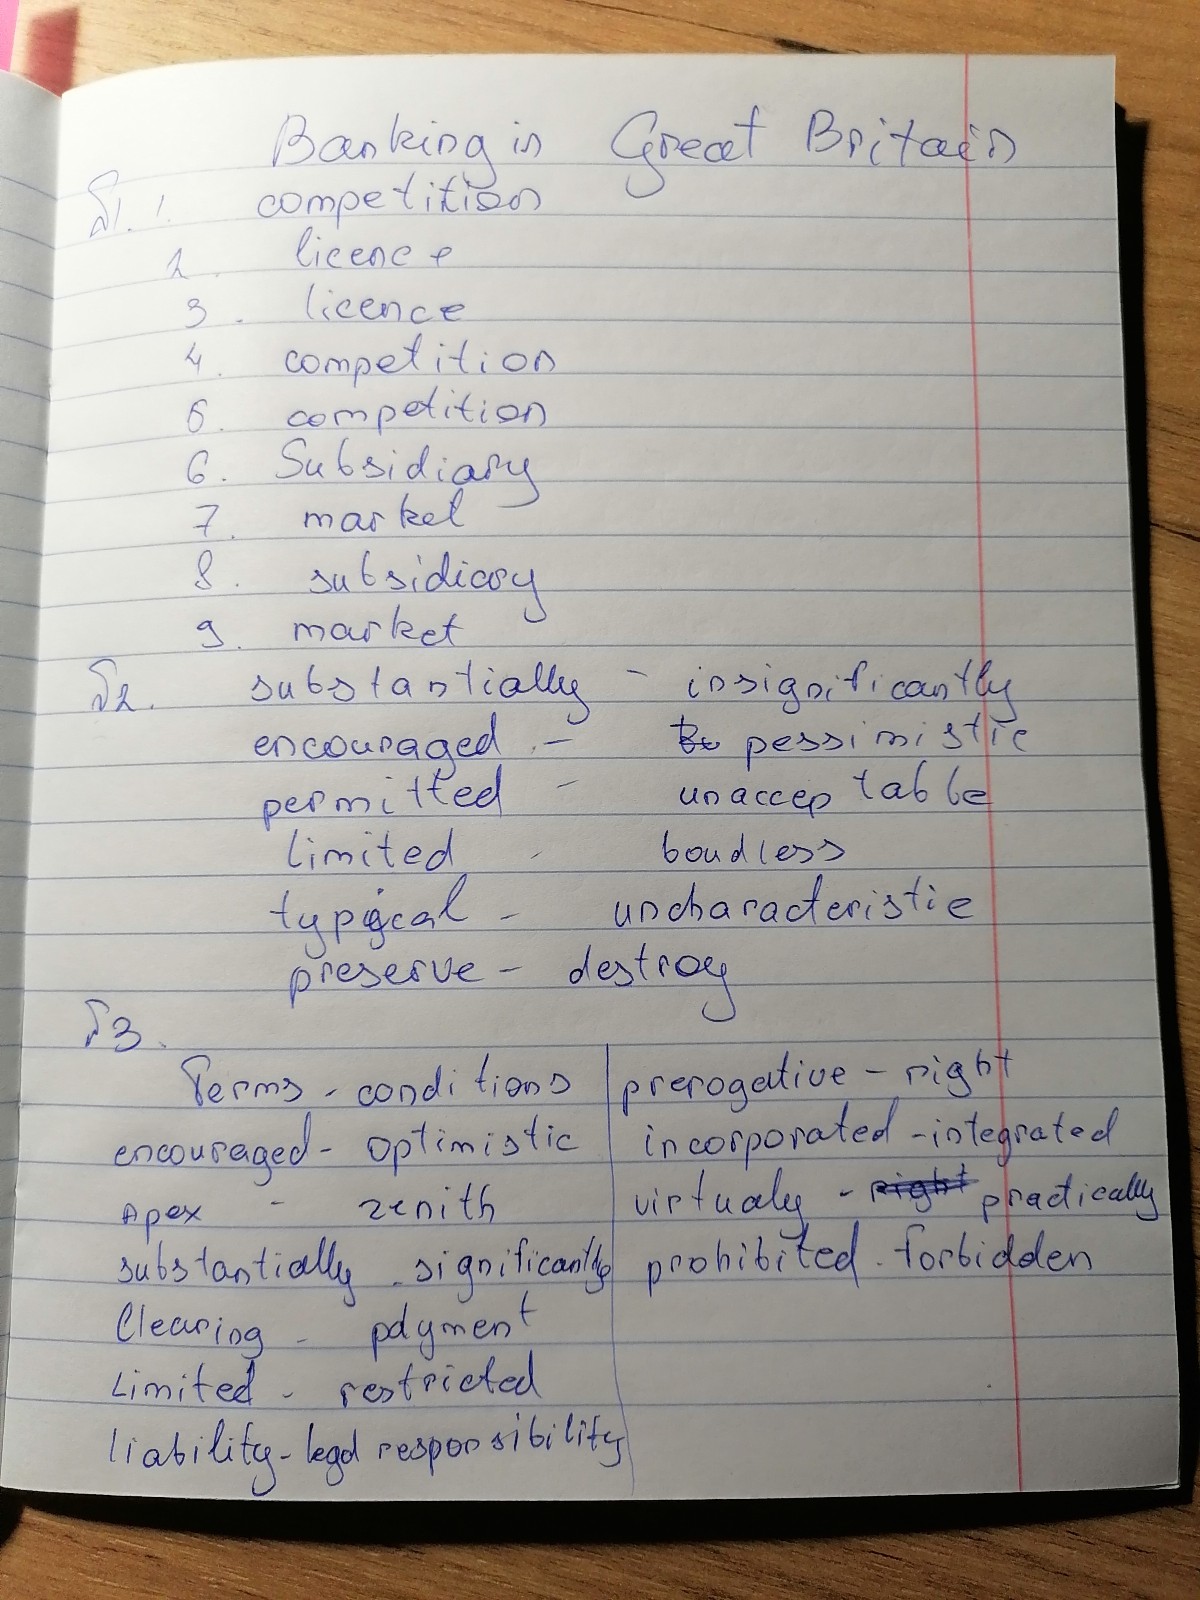 Banking in Great Britain
№1. 1. competition
2. licence
3. licence
4. competition
5. competition
6. Subsidiary
7. market
8. subsidiary
9. market
№2. substantially - insignificantly
encouraged - pessimistic
permitted - unacceptable
limited - boudless
typical - uncharacteristic
preserve - destroy
№3.
Terms - conditions
encouraged - optimistic
Apex - zenith
substantially - significantly
Clearing - payment
Limited - restricted
liability - legal responsibility
prerogative - right
incorporated - integrated
virtualy - practically
prohibited - forbidden